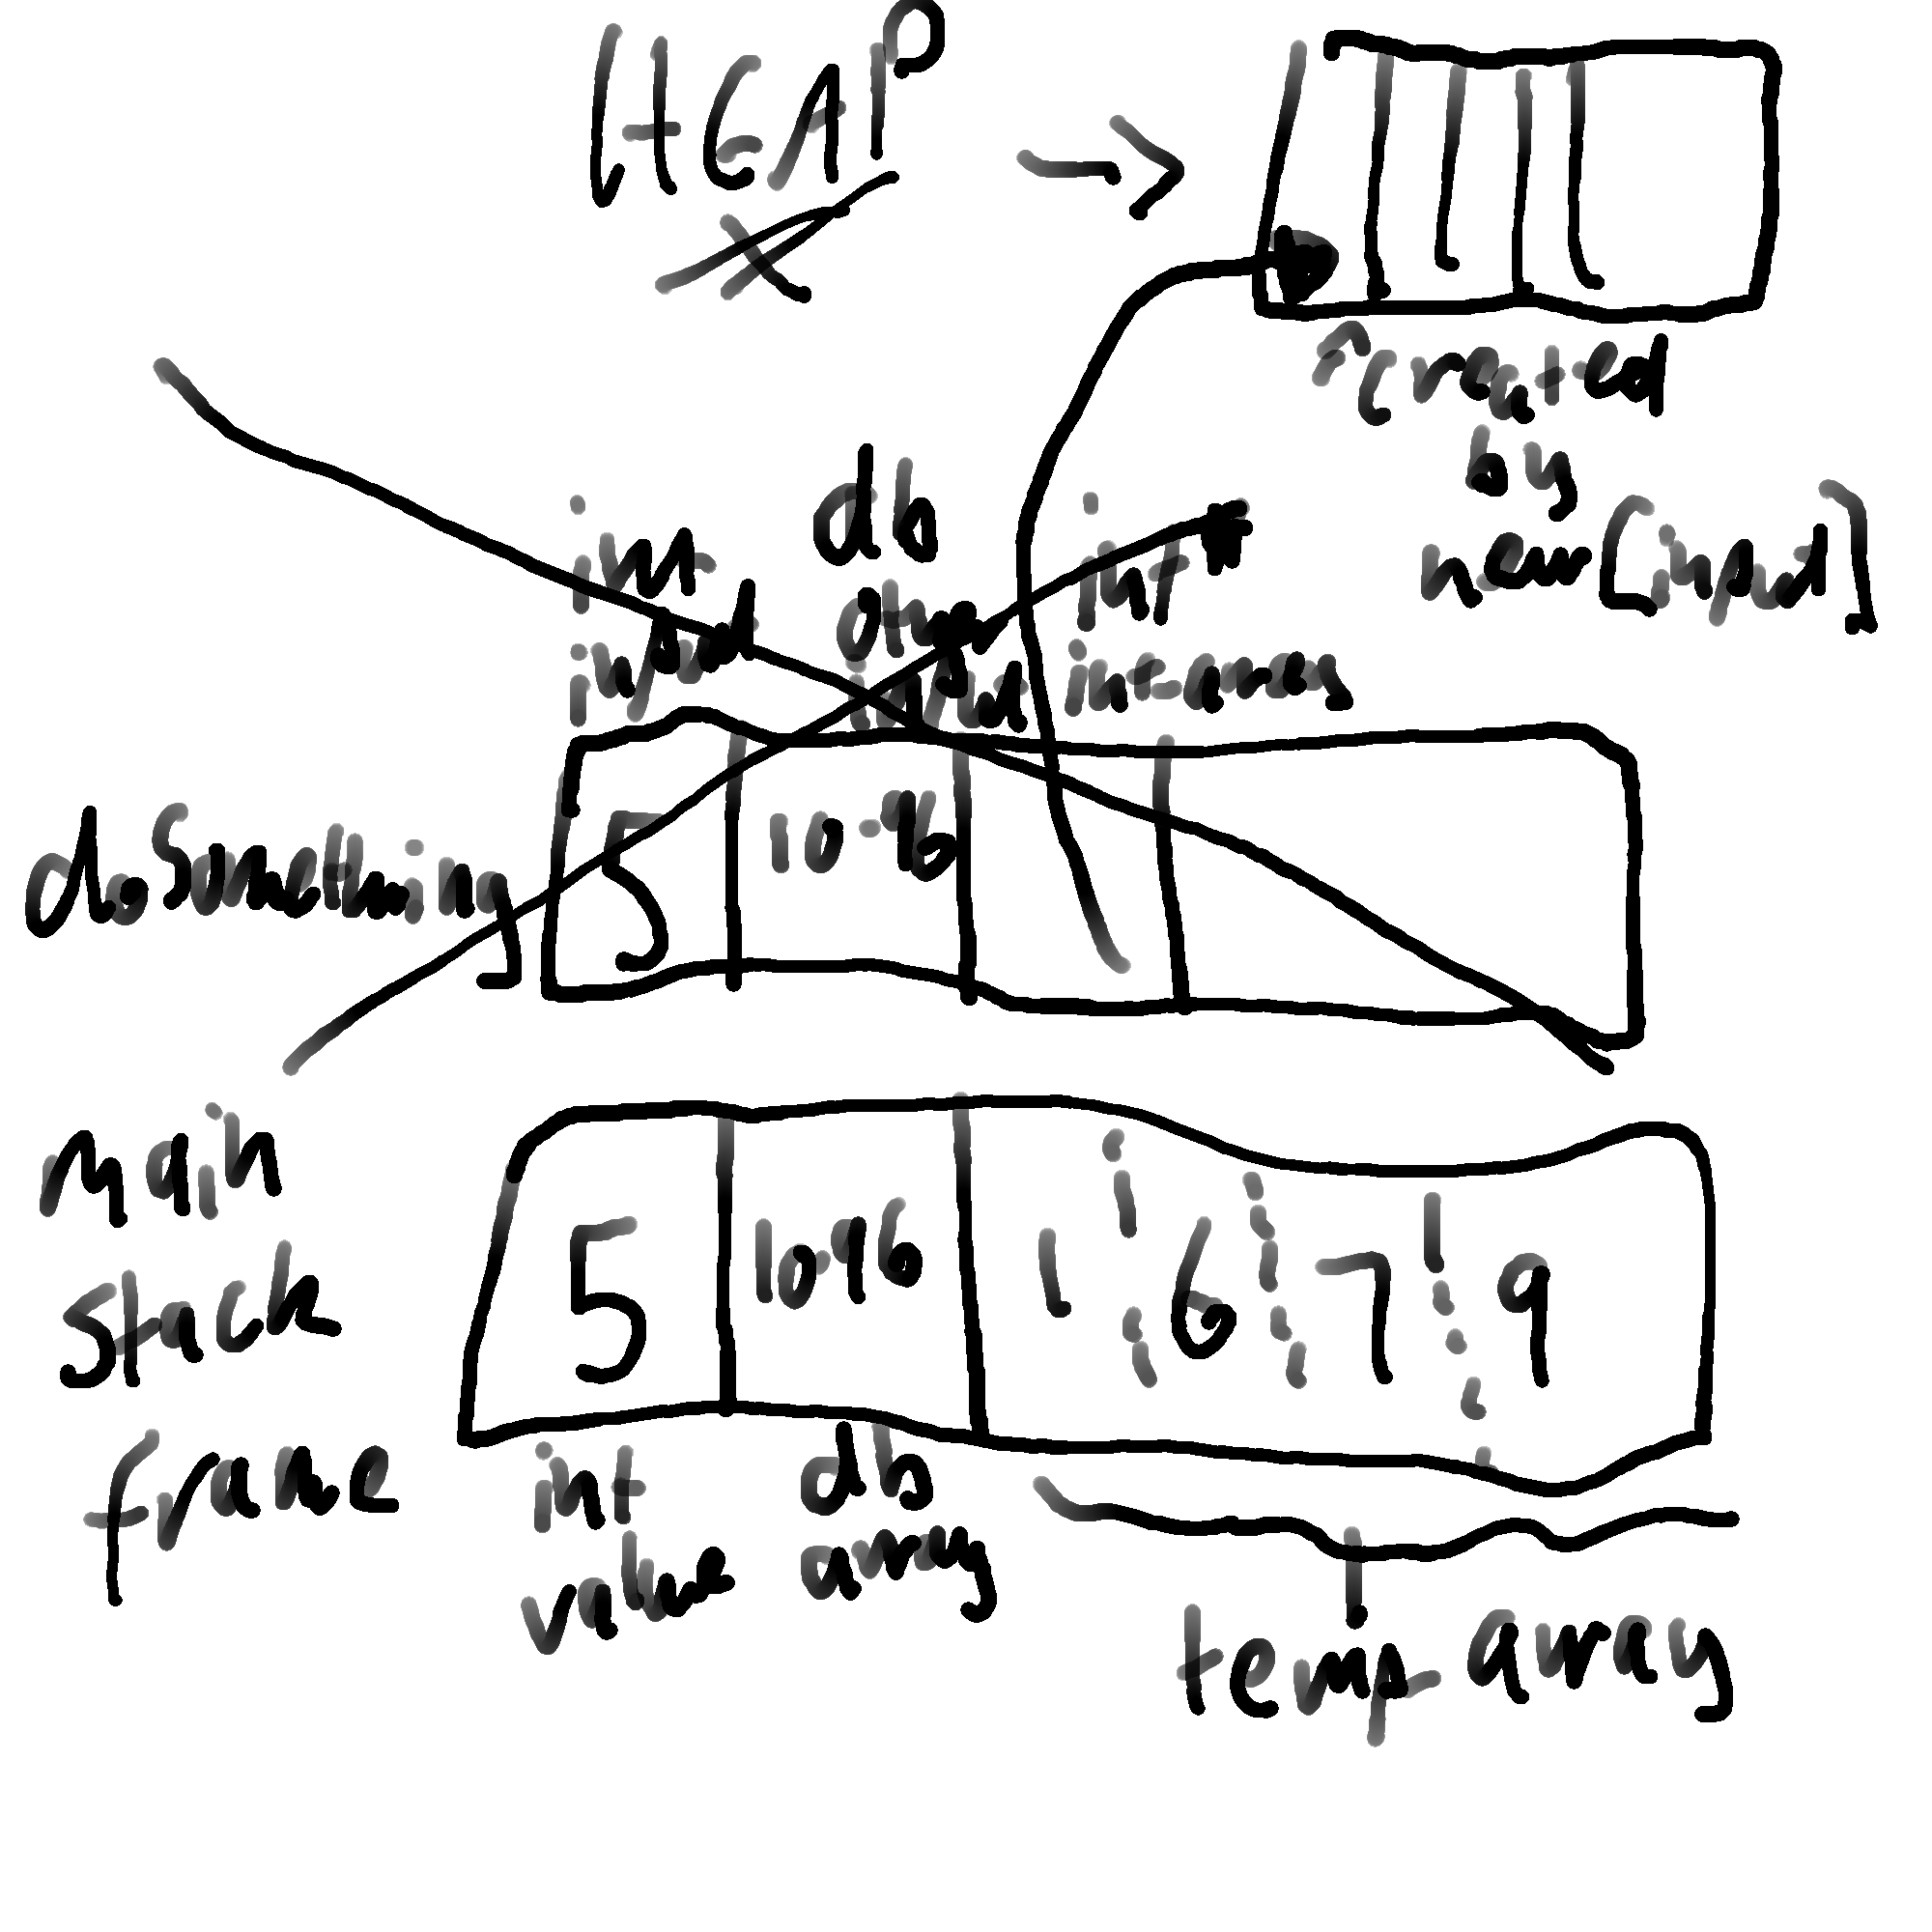 HEAP →
created
by
new[input]
int
input
db
other
input
int*
int-array
doSomething
5 10.96
main
stack
frame
5 10.96 1 6 7 9
int
value
db
array
temp array